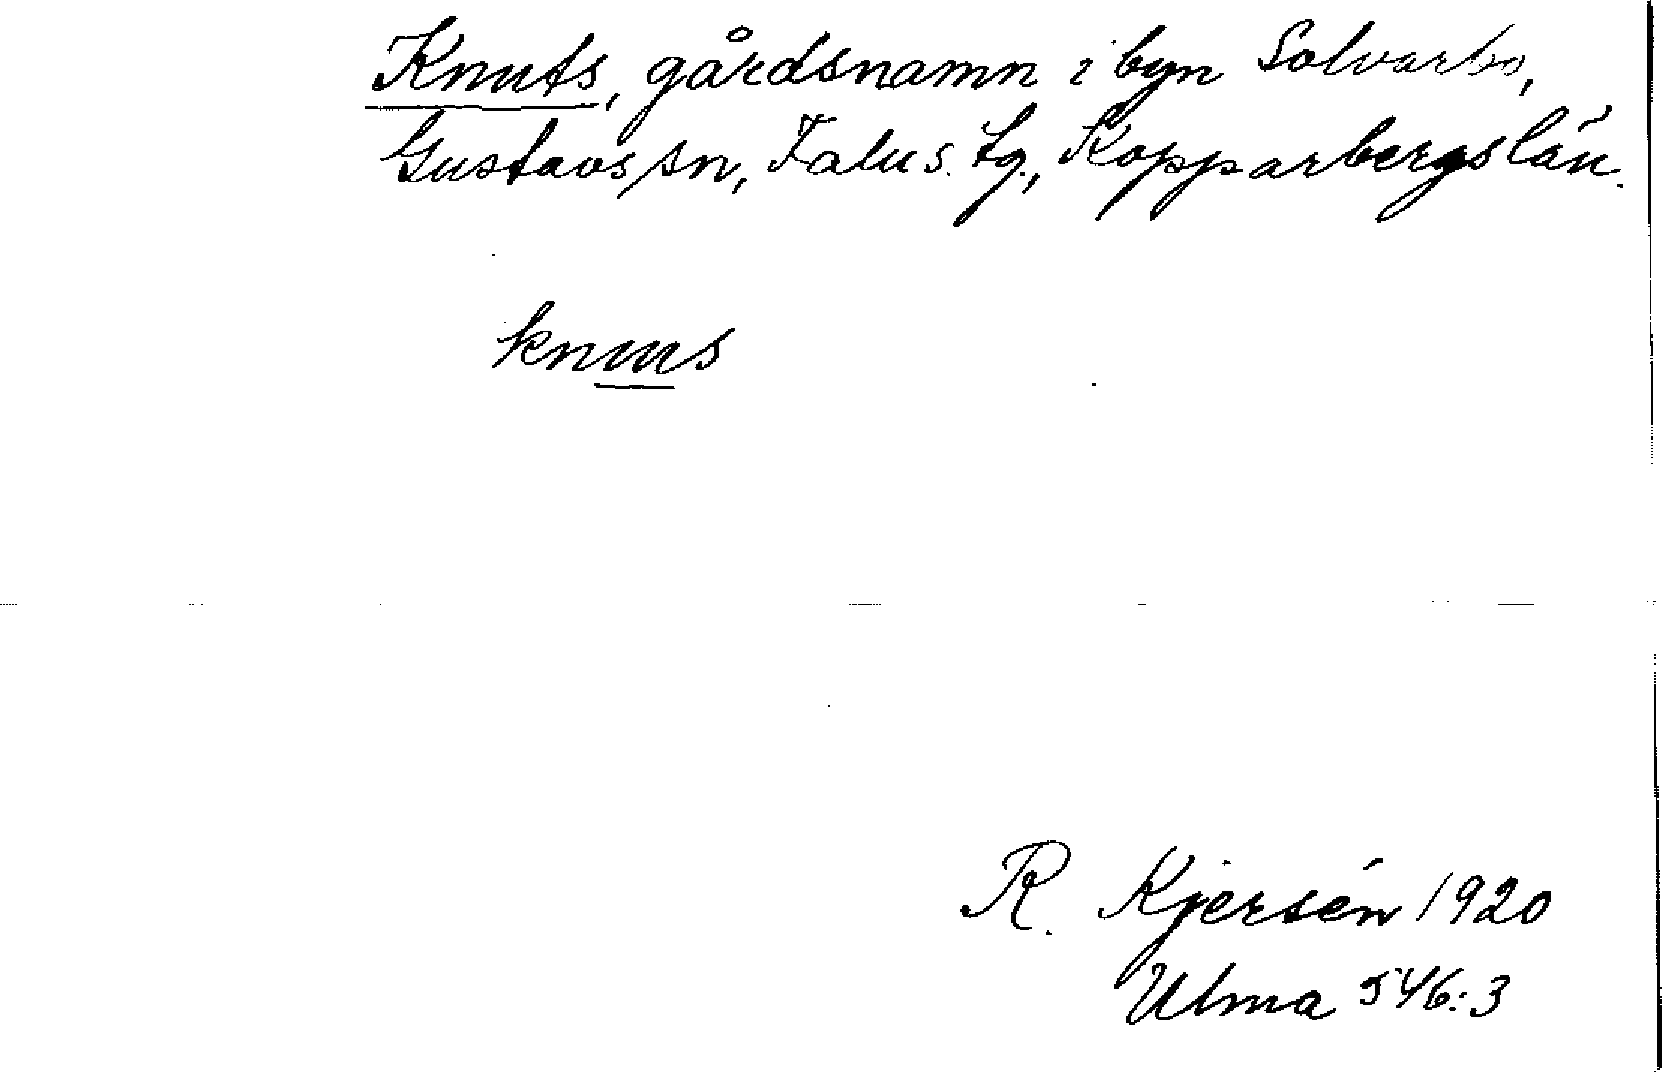 Knuts, gårdsnamn i byn Solvarbo,
Gustavs sn, Falu s. tg., Kopparbergs län.
knuus
R. Kjersén 1920
Ulma 546:3